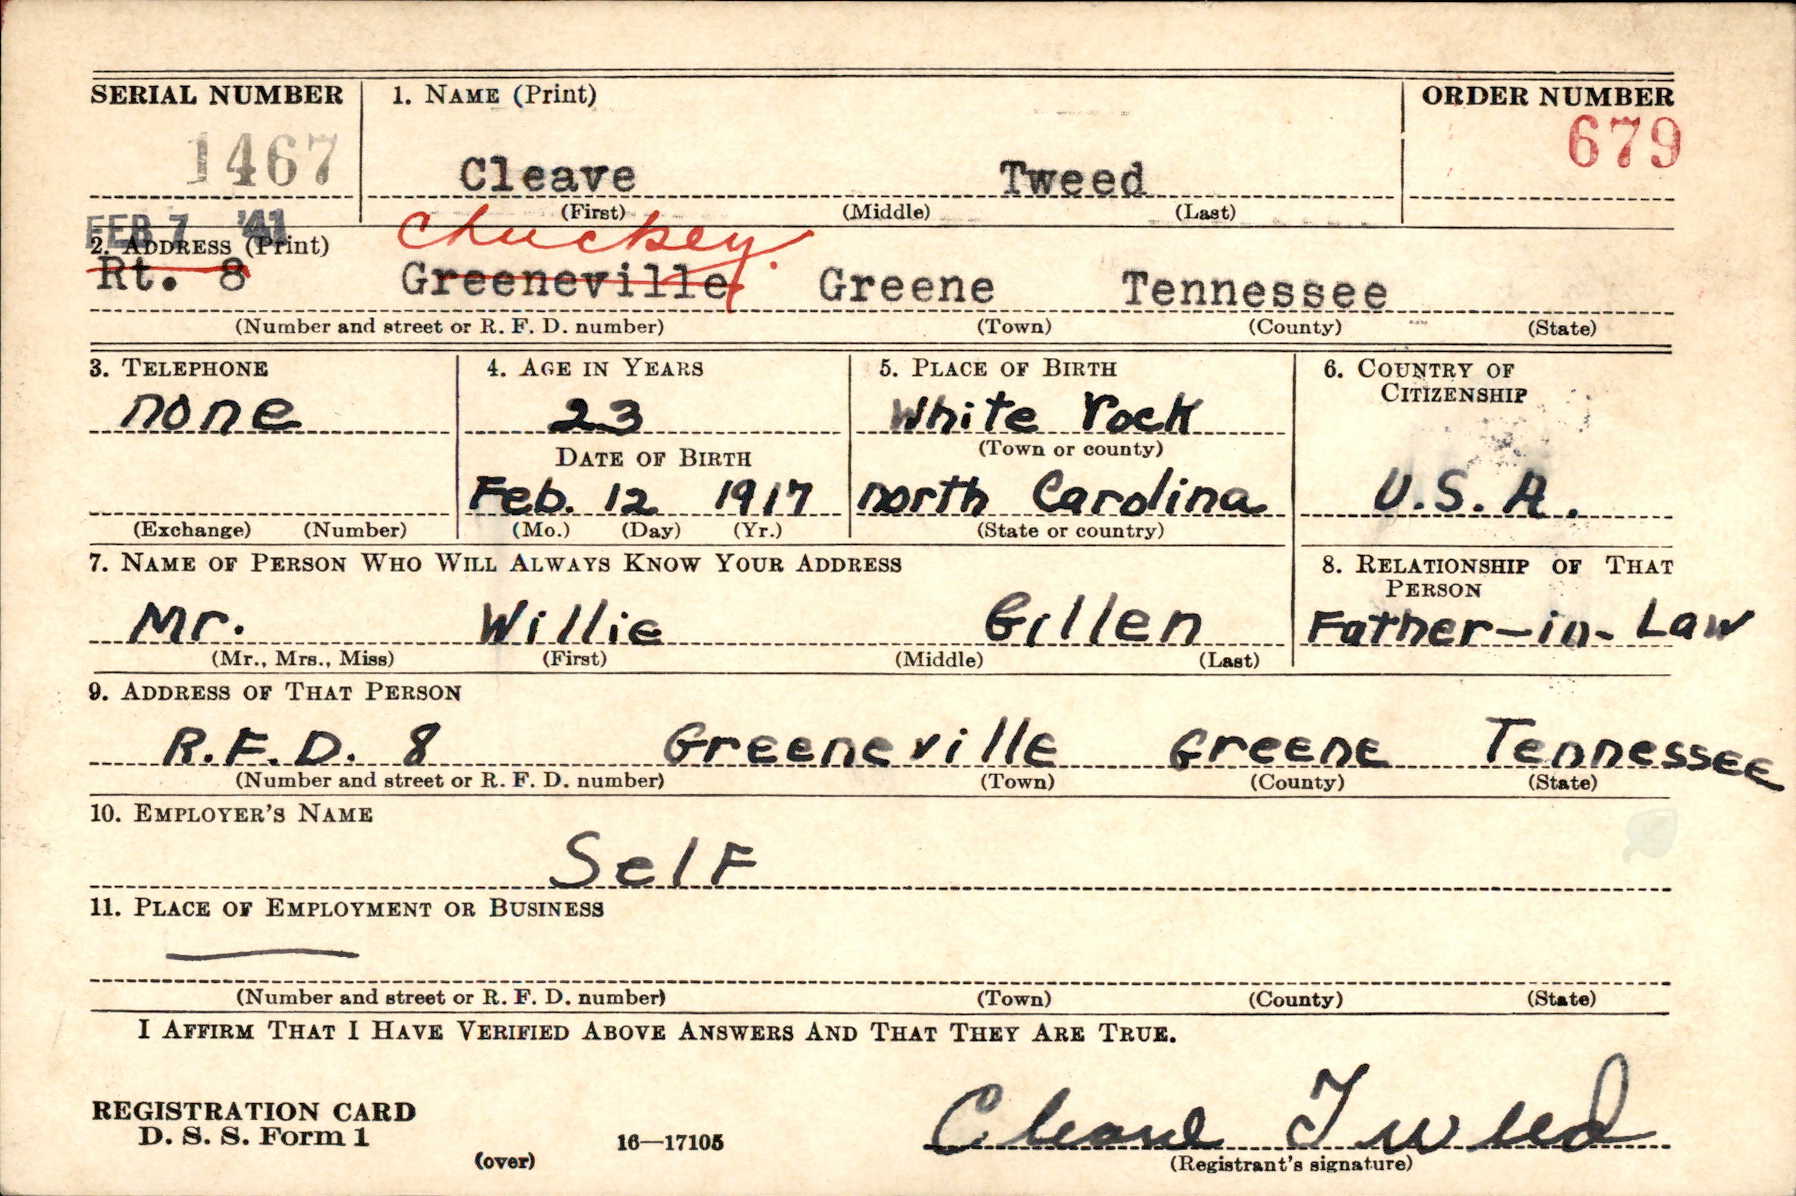 SERIAL NUMBER 1. NAME (Print) ORDER NUMBER
1467 Cleave Tweed 679
(First) (Middle) (Last)
FEB 7 '41
2. ADDRESS (Print) Chuckey.
Rt. 8 Greeneville Greene Tennessee
(Number and street or R. F. D. number) (Town) (County) (State)
3. TELEPHONE 4. AGE IN YEARS 5. PLACE OF BIRTH 6. COUNTRY OF
CITIZENSHIP
none 23 White rock
DATE OF BIRTH (Town or county)
Feb. 12 1917 north Carolina U.S.A.
(Exchange) (Number) (Mo.) (Day) (Yr.) (State or country)
7. NAME OF PERSON WHO WILL ALWAYS KNOW YOUR ADDRESS 8. RELATIONSHIP OF THAT
PERSON
Mr. Willie Gillen Father-in-Law
(Mr., Mrs., Miss) (First) (Middle) (Last)
9. ADDRESS OF THAT PERSON
R.F.D. 8 Greeneville Greene Tennessee
(Number and street or R. F. D. number) (Town) (County) (State)
10. EMPLOYER'S NAME
Self
11. PLACE OF EMPLOYMENT OR BUSINESS
(Number and street or R. F. D. number) (Town) (County) (State)
I AFFIRM THAT I HAVE VERIFIED ABOVE ANSWERS AND THAT THEY ARE TRUE.
REGISTRATION CARD
D. S. S. Form 1 16—17105 Cleave Tweed
(over) (Registrant's signature)